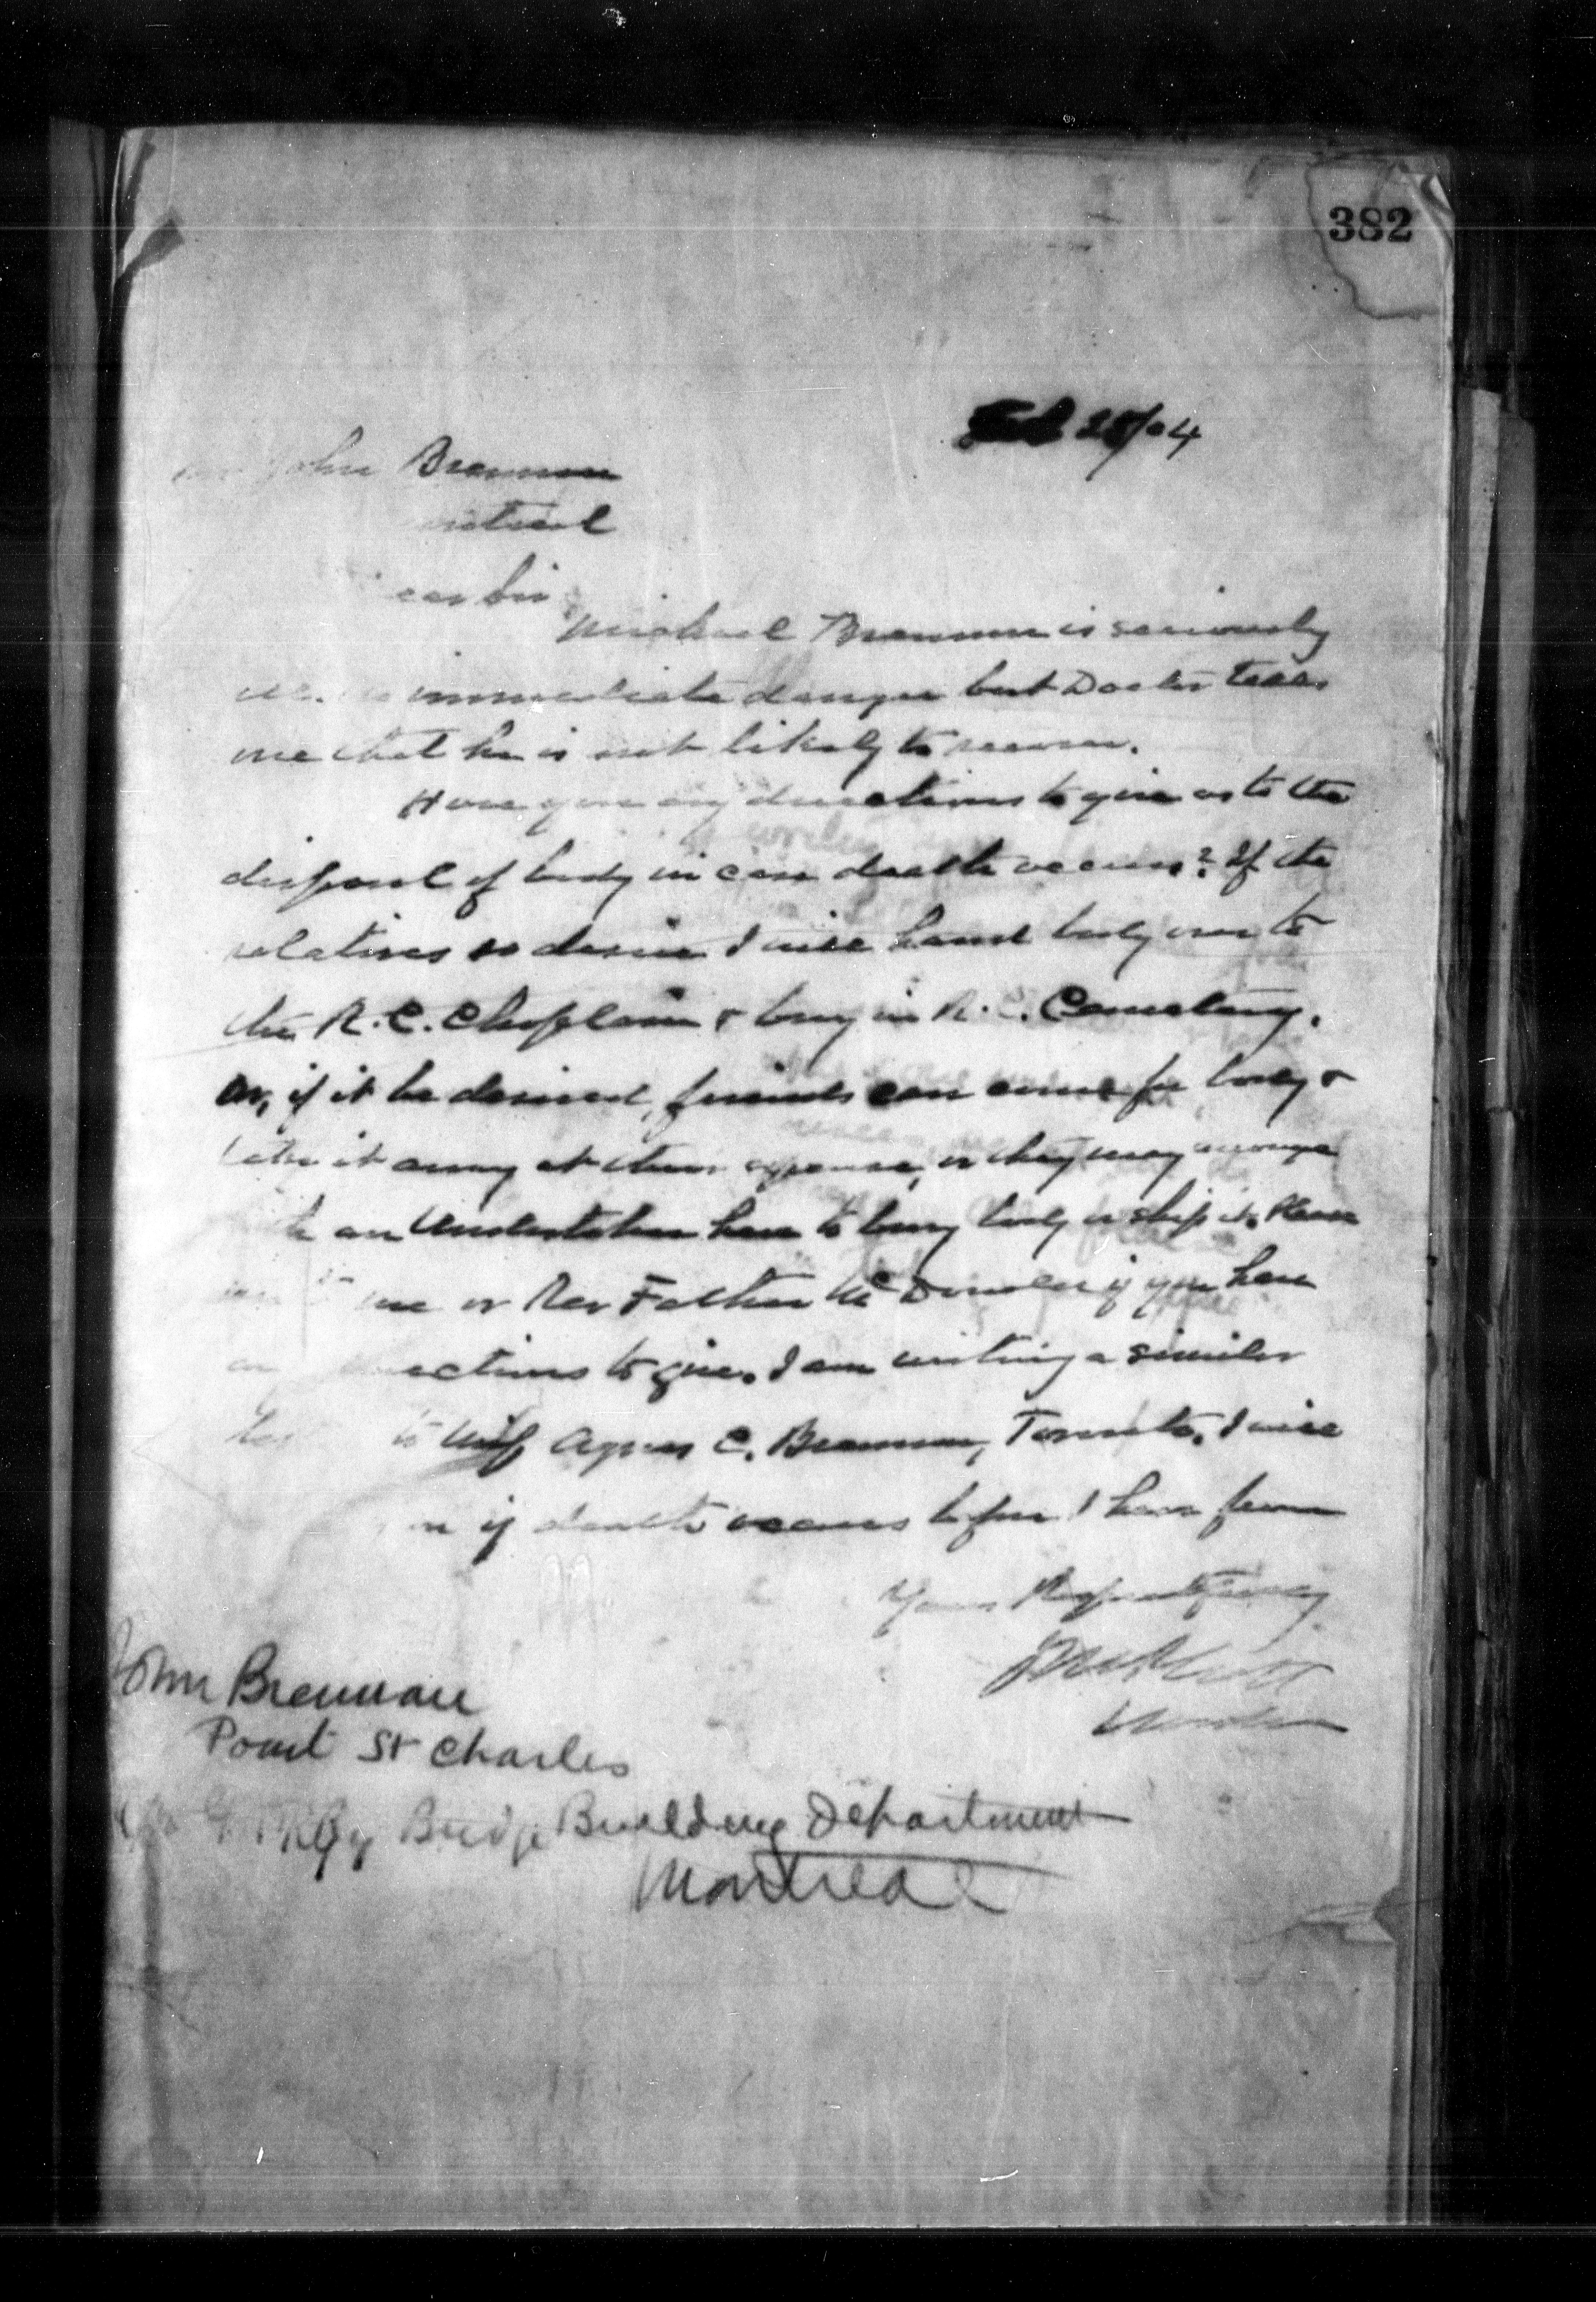 382
Feb 25/04
John Brennan
Michael Brennan is seriously
immediate danger but Doctor tells
me that he is not likely to recover.
Have you any directions to give as to the
disposal of body in case death occurs? If the
relatives so desire I will hand body over to
the R.C. Chaplain & bury in R.C. Cemetery.
or, if it be desired, friends can come for body &
take it away at their expense, or they may arrange
an Undertaker here to bury body or ship it. Please
me or Rev Father McDonald if you have
to give. I am writing a similar
to wife Agnes C. Brennan, Toronto. I will
if death occurs before I hear from
Yours Respectfully
Warden
John Brennan
Point St Charles
Bridge Building Department
Montreal